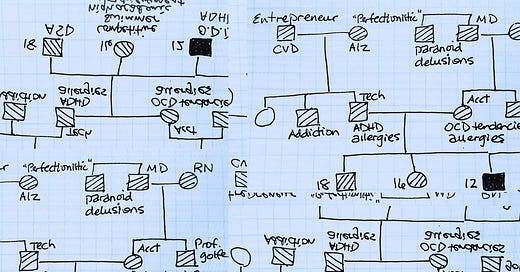 ASD
18
16
12
Addiction
allergies
ADHD
Tech
allergies
OCD tendencies
Acct
Entrepreneur
CVD
"Perfectionistic"
Alz
MD
paranoid
delusions
Addiction
Tech
ADHD
allergies
Acct
OCD tendencies
allergies
18
16
12
"Perfectionistic"
Alz
MD
paranoid
delusions
RN
Tech
Acct
Prof.
golfe
Addiction
allergies
ADHD
allergies
OCD tendencies